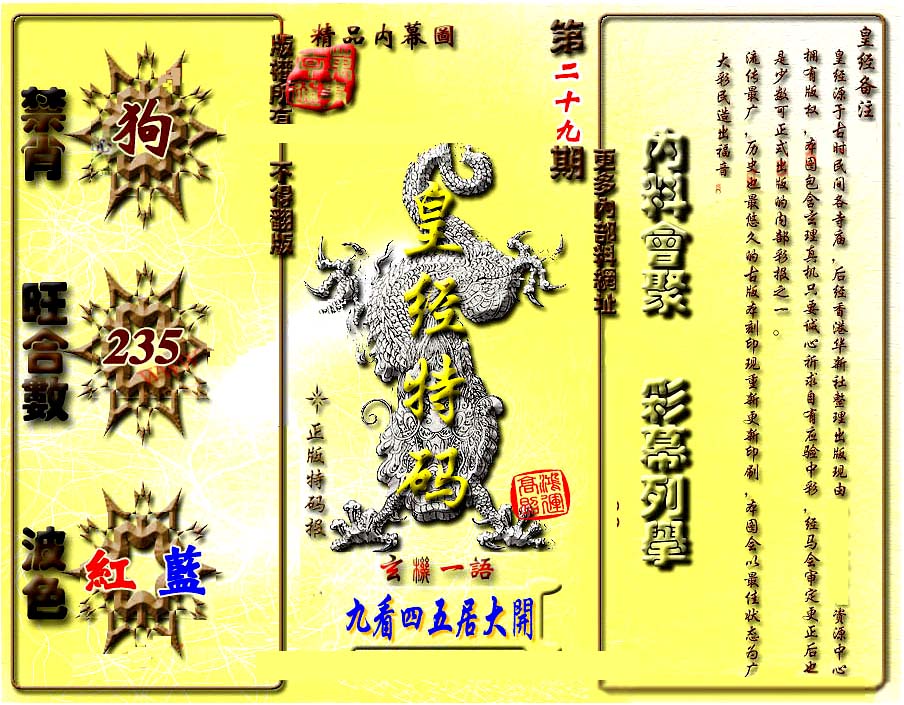 精品内幕圖
第二十九期
版權所有
不得翻版
禁肖
狗
旺合數
235
波色
紅 藍
皇经特码
正版特码报
鴻運高照
玄機一語
九看四五居大開
更多內部料網址
內料會聚
彩幕列舉
皇经备注
皇经源于古时民间各寺庙，后经香港华新社整理出版现由 资源中心
拥有版权，本图包含玄理真机只要诚心祈求自有应验中彩，经马会审定更正后也
是少数可正式出版的内部彩报之一。
流传最广，历史也最悠久的古版本刻印现重新更新印刷，本图会以最佳状态为广
大彩民造出福音